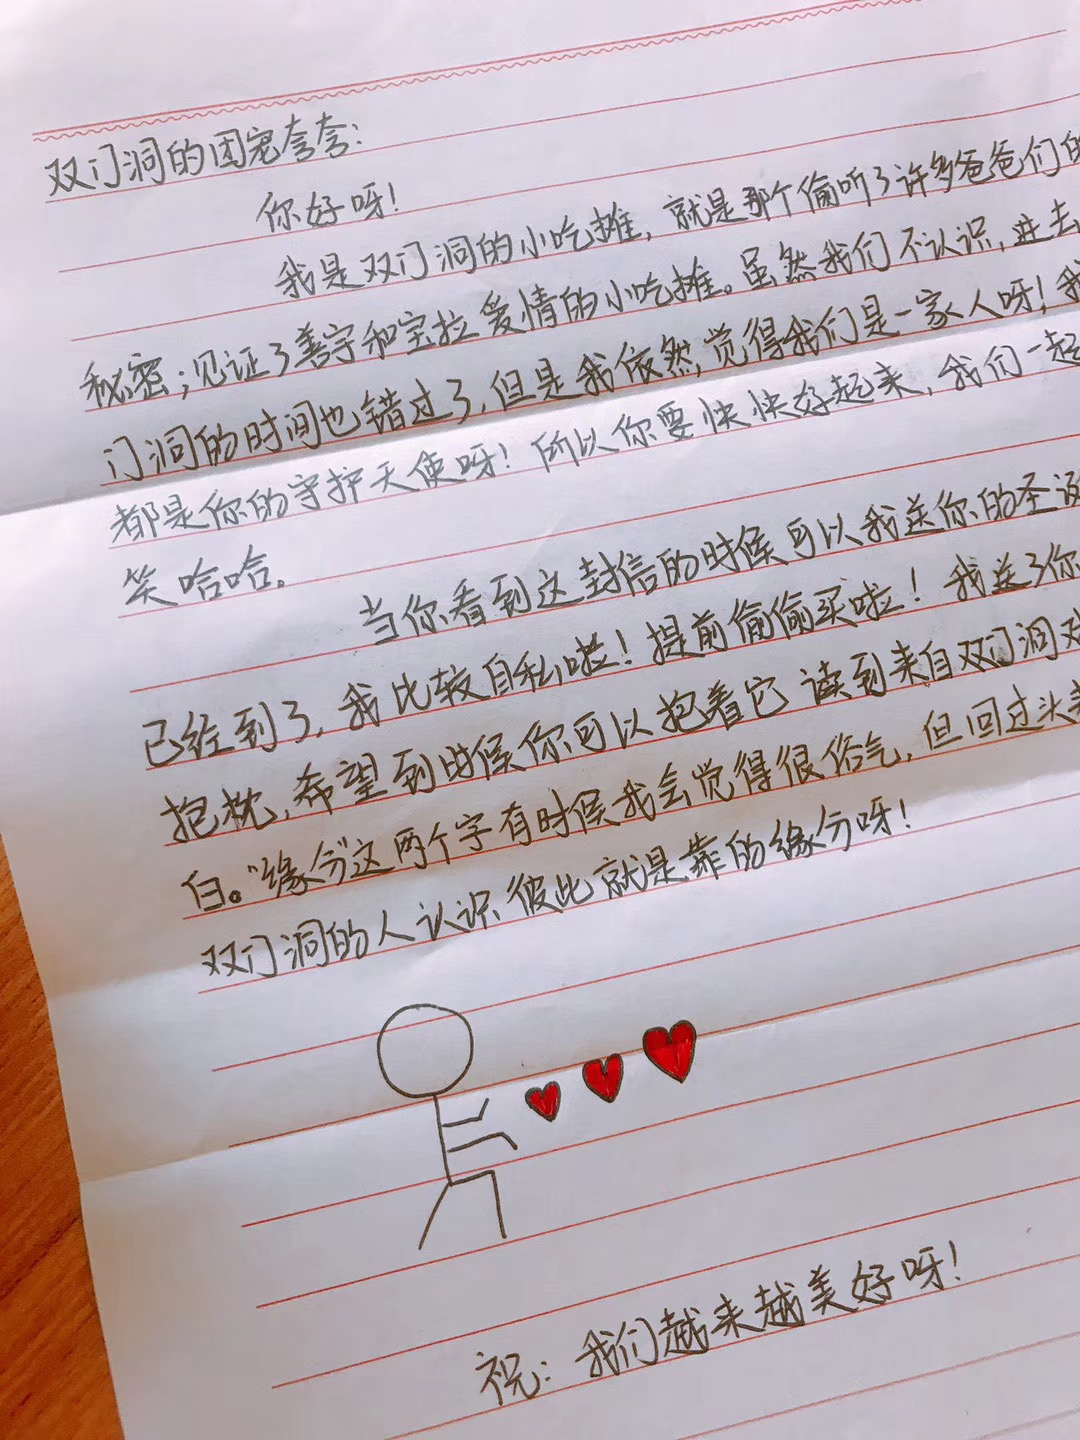 双门洞的团宠夸夸：
你好呀！
我是双门洞的小吃摊，就是那个偷听了许多爸爸们的
秘密；见证了善宇和宝拉爱情的小吃摊。虽然我们不认识，进去
门洞的时间也错过了，但是我依然觉得我们是一家人呀！我
都是你的守护天使呀！所以你要快快好起来，我们一起
笑哈哈。
当你看到这封信的时候可以我送你的圣诞
已经到了，我比较自私啦！提前偷偷买啦！我送了你
抱枕，希望到时候你可以抱着它读到来自双门洞
白。“缘分”这两个字有时候我会觉得很俗气，但回过头
双门洞的人认识彼此就是靠的缘分呀！
祝：我们越来越美好呀！